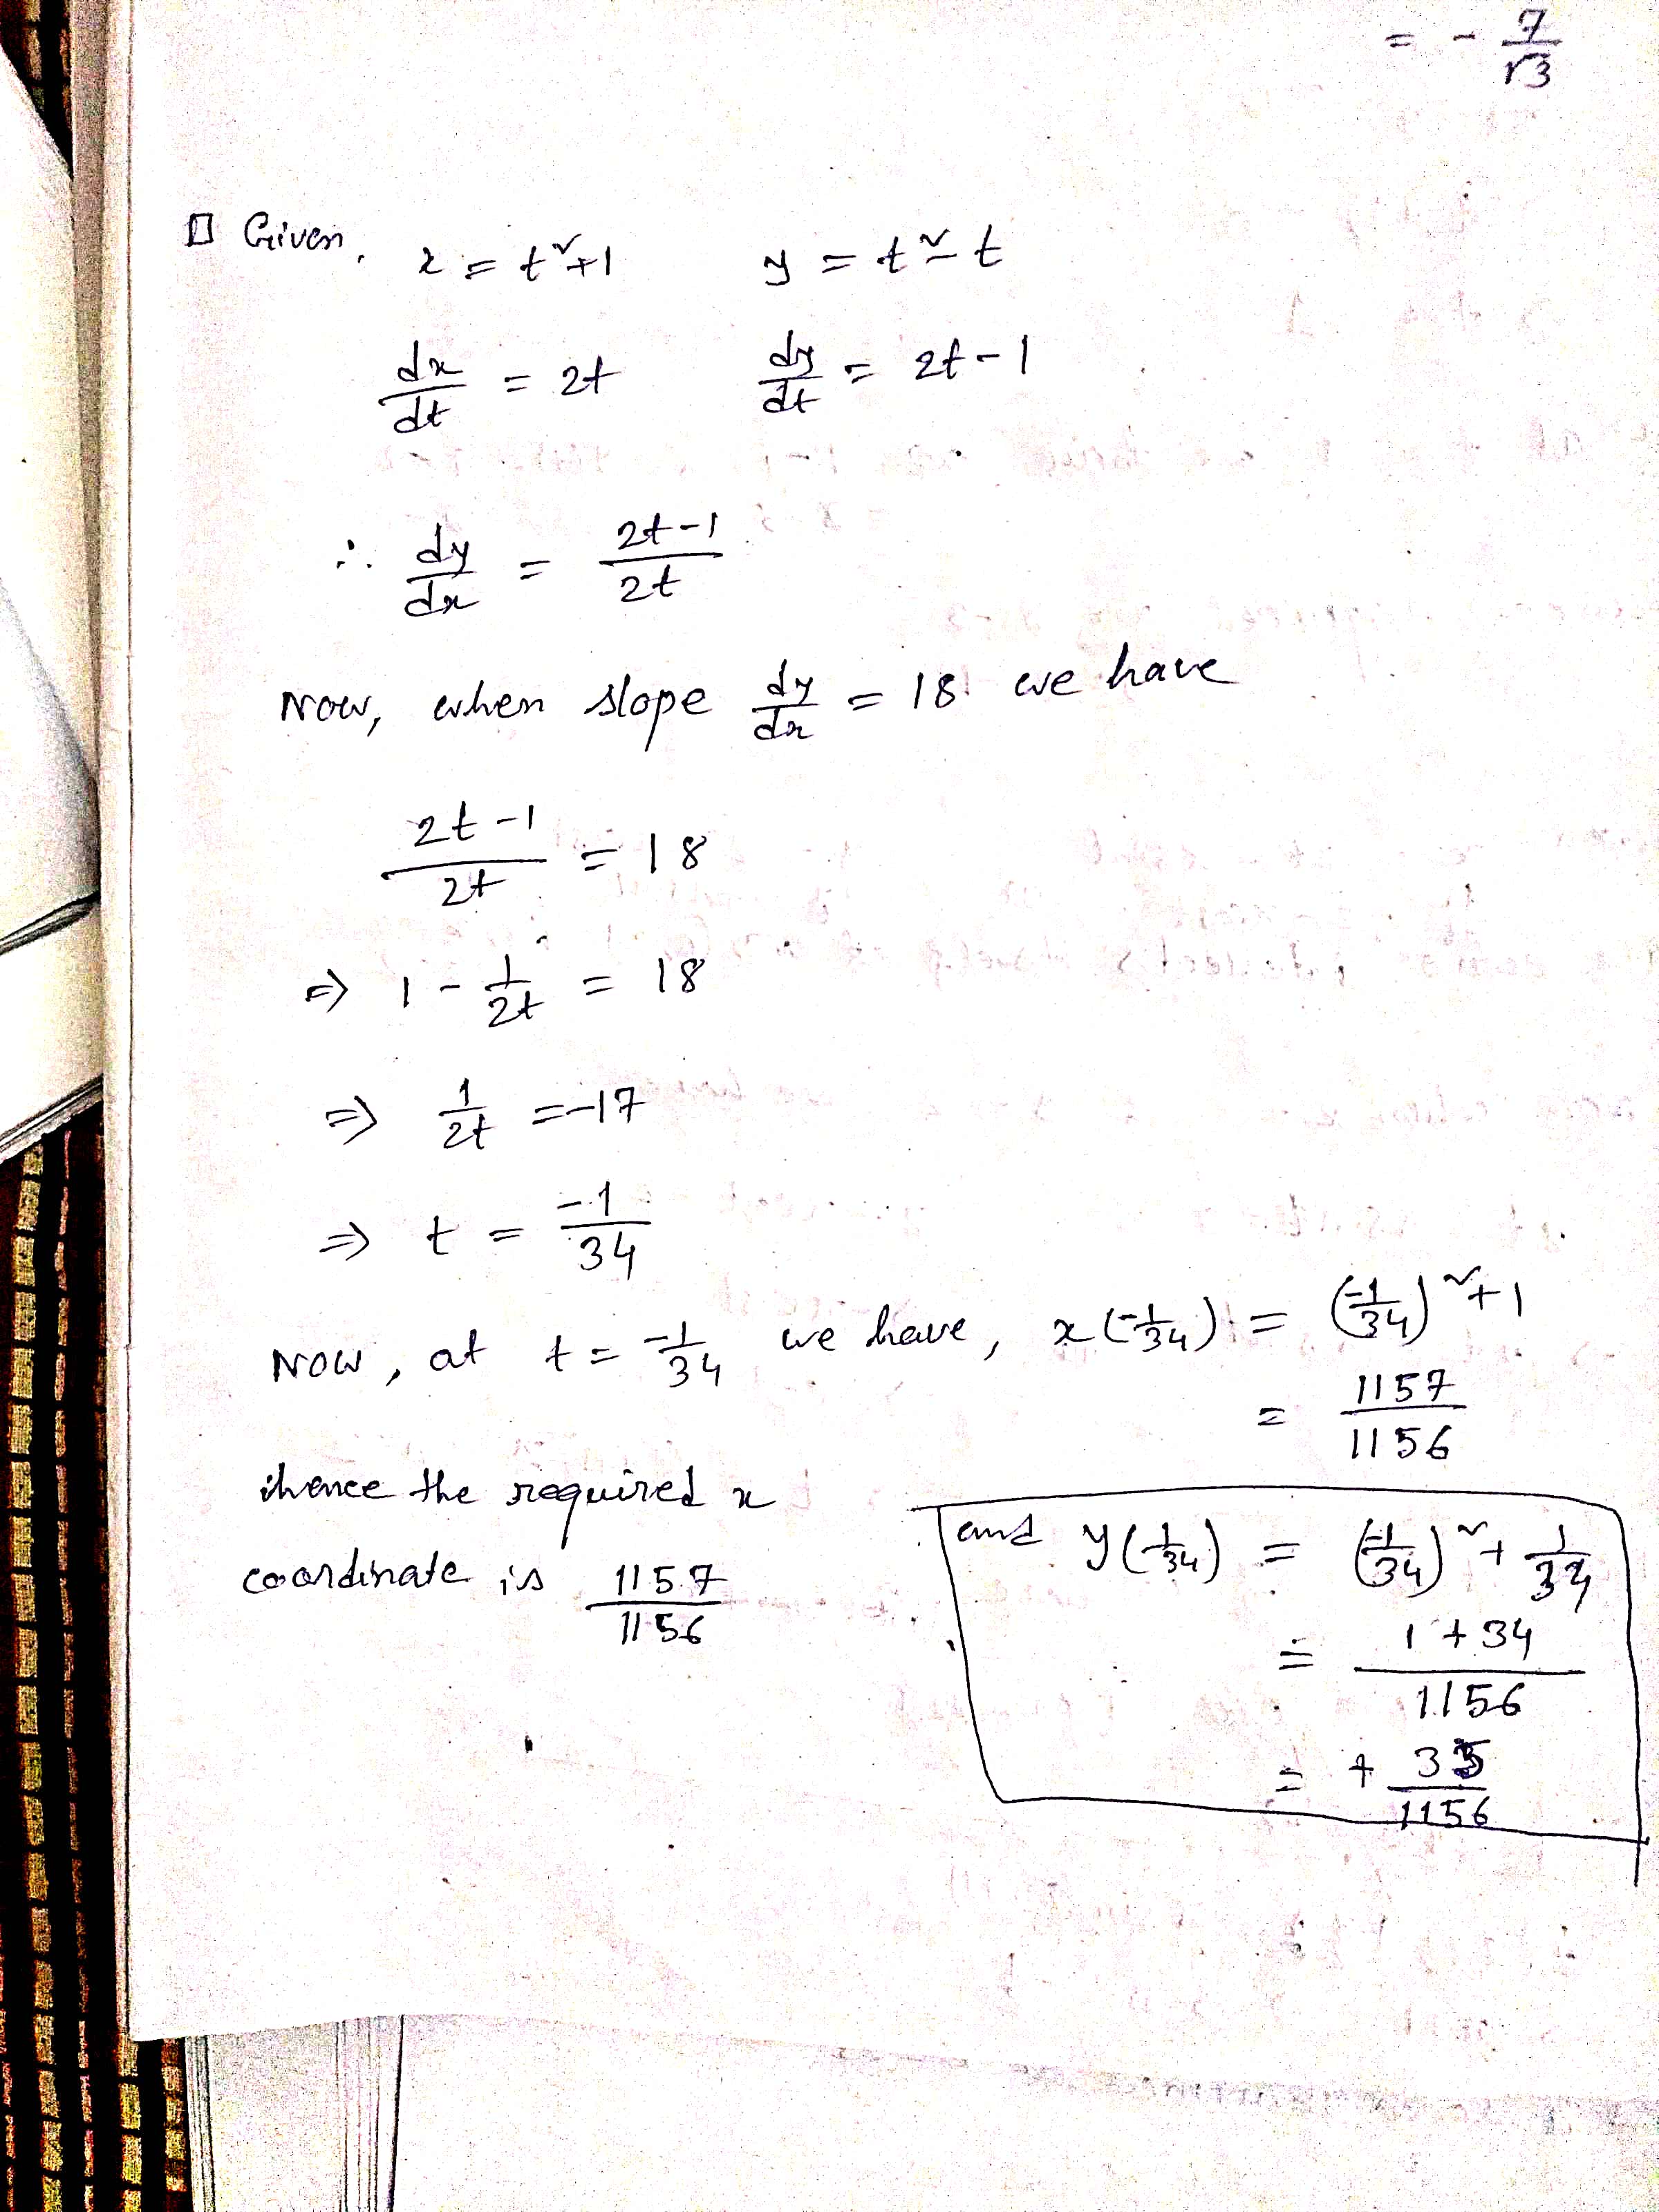 = - 7/√3
Given, x = t²+1    y = t²-t
dx/dt = 2t    dy/dt = 2t-1
∴ dy/dx = 2t-1/2t
Now, when slope dy/dx = 18 we have
2t-1/2t = 18
⇒ 1 - 1/2t = 18
⇒ 1/2t = -17
⇒ t = -1/34
Now, at t = -1/34 we have, x(-1/34) = (-1/34)²+1
= 1157/1156
hence the required x
coordinate is 1157/1156
and y(-1/34) = (-1/34)² + 1/34
= 1+34/1156
= + 35/1156